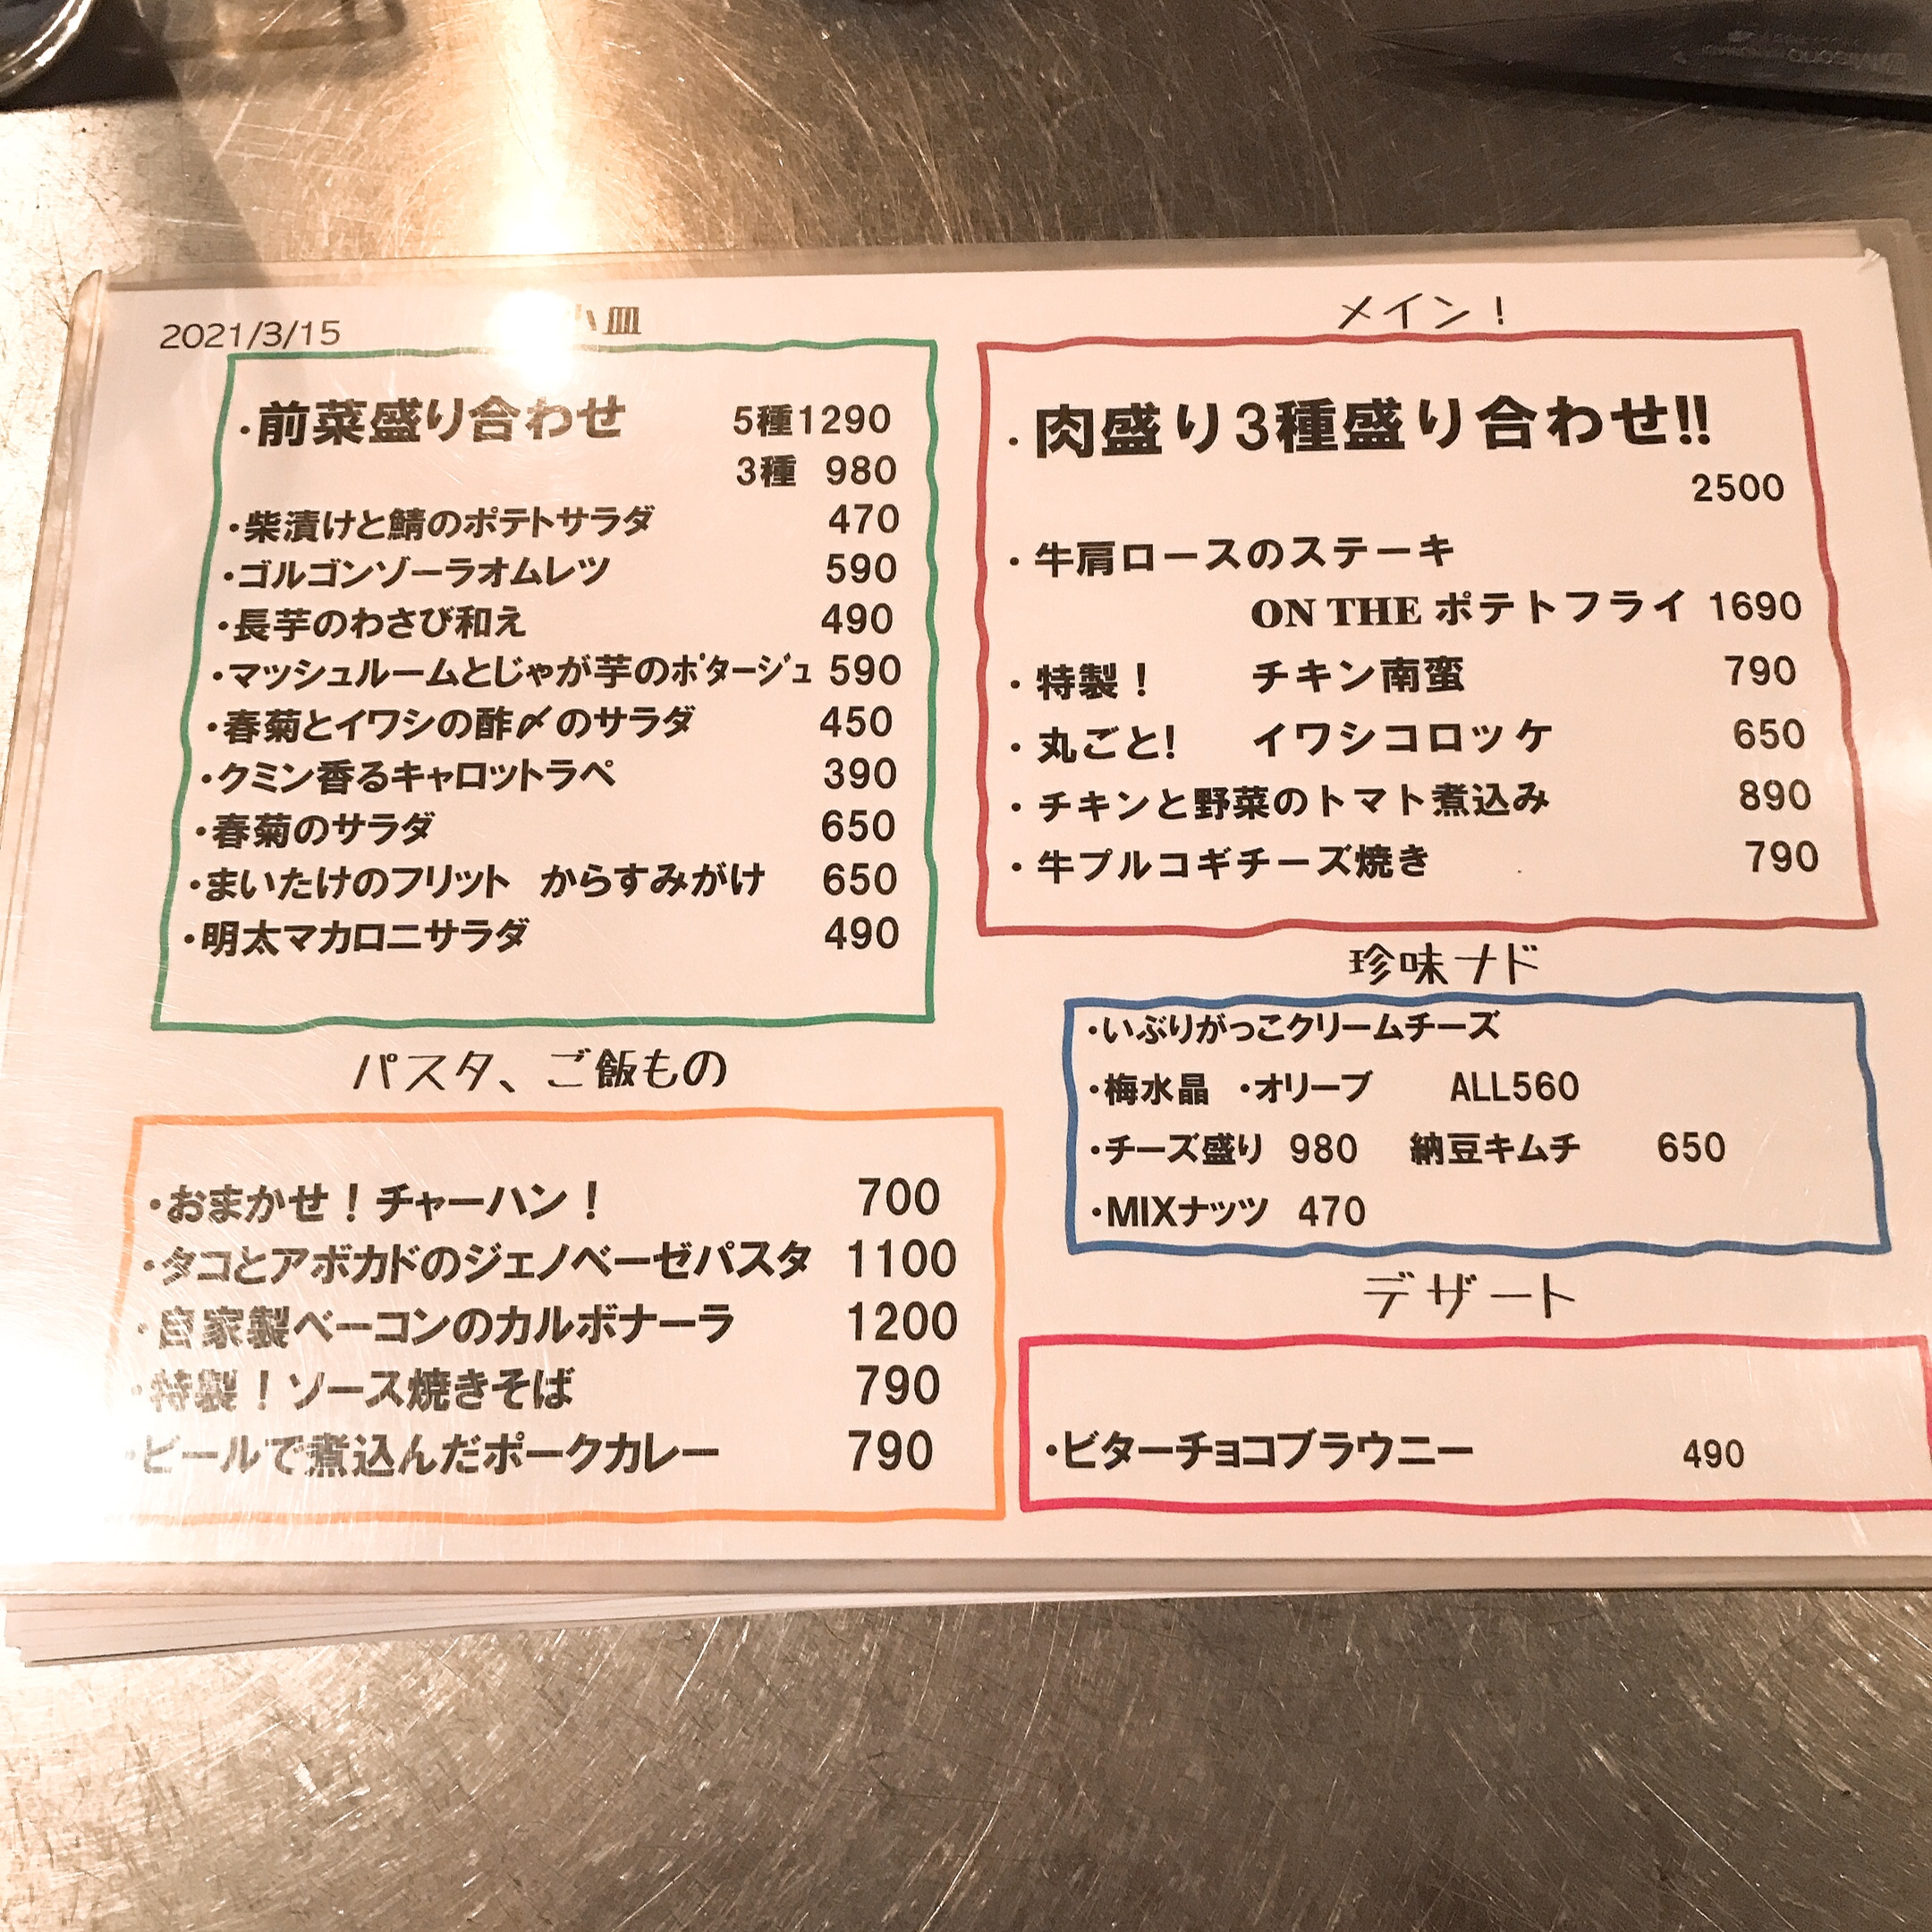 2021/3/15
小皿
・前菜盛り合わせ 5種1290
3種 980
・柴漬けと鯖のポテトサラダ 470
・ゴルゴンゾーラオムレツ 590
・長芋のわさび和え 490
・マッシュルームとじゃが芋のポタージュ 590
・春菊とイワシの酢〆のサラダ 450
・クミン香るキャロットラペ 390
・春菊のサラダ 650
・まいたけのフリット からすみがけ 650
・明太マカロニサラダ 490
パスタ、ご飯もの
・おまかせ！チャーハン！ 700
・タコとアボカドのジェノベーゼパスタ 1100
・自家製ベーコンのカルボナーラ 1200
・特製！ソース焼きそば 790
・ビールで煮込んだポークカレー 790
メイン！
・肉盛り3種盛り合わせ!!
2500
・牛肩ロースのステーキ
ON THE ポテトフライ 1690
・特製！ チキン南蛮 790
・丸ごと! イワシコロッケ 650
・チキンと野菜のトマト煮込み 890
・牛プルコギチーズ焼き 790
珍味ナド
・いぶりがっこクリームチーズ
・梅水晶 ・オリーブ ALL560
・チーズ盛り 980 納豆キムチ 650
・MIXナッツ 470
デザート
・ビターチョコブラウニー 490